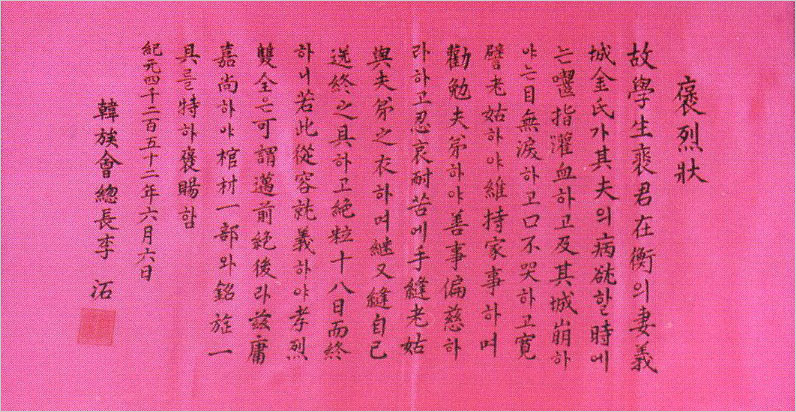 褒烈狀
故學生裵君在衡의妻義
城金氏가其夫의病欲할時에
는嚙指灌血하고及其城崩하
야는目無淚하고口不哭하고寬
譬老姑하야維持家事하며
勸勉夫弟하야善事偏慈하
라하고忍哀耐苦에手縫老姑
與夫弟之衣하며繼又縫自己
送終之具하고絶粒十八日而終
하니若此從容就義하야孝烈
雙全은可謂邁前絶後라玆庸
嘉尚하야棺材一部와銘旌一
具를特히褒賜함
紀元四千二百五十二年六月六日
韓族會總長李沰